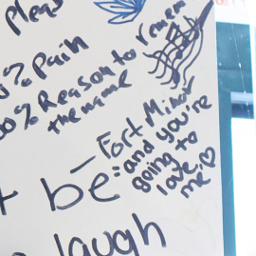 Pleas
% Pain
0% Reason to remem
the name
— Fort Minor
and you're
going to
love
me ♡
t be:
laugh